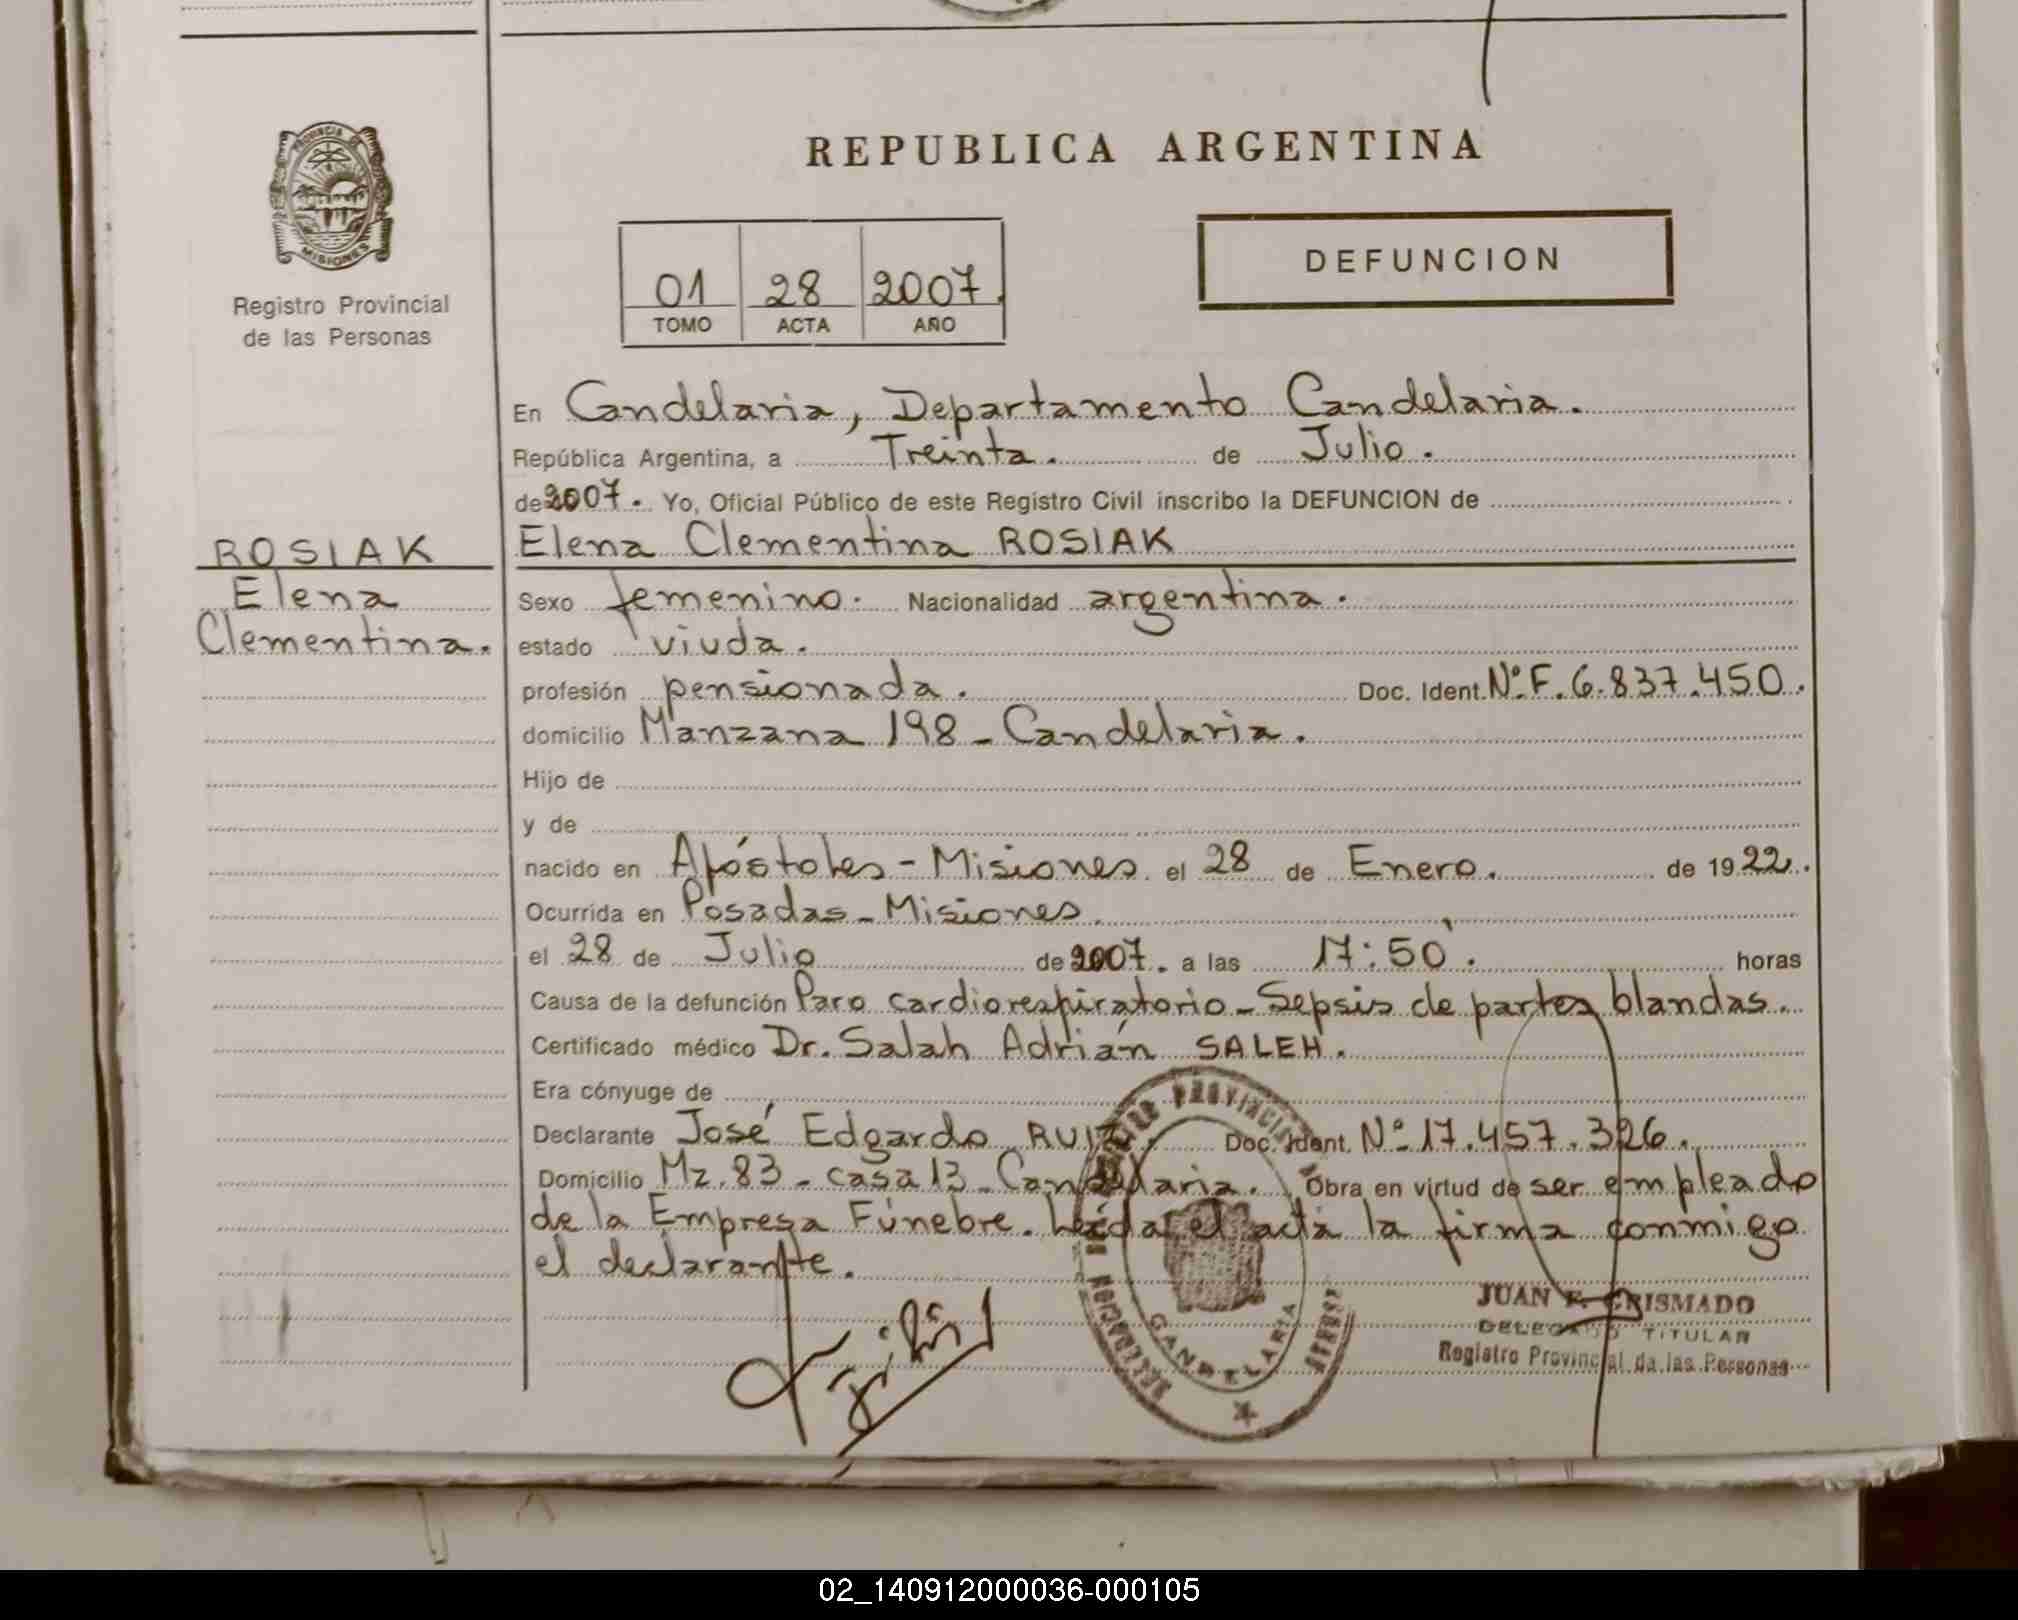 PROVINCIA DE
MISIONES
Registro Provincial
de las Personas
REPUBLICA ARGENTINA
01 28 2007
TOMO ACTA AÑO
DEFUNCION
En Candelaria, Departamento Candelaria.
República Argentina, a Treinta. de Julio.
de 2007. Yo, Oficial Público de este Registro Civil inscribo la DEFUNCION de
ROSIAK
Elena
Clementina.
Elena Clementina ROSIAK
Sexo femenino. Nacionalidad argentina.
estado viuda.
profesión pensionada. Doc. Ident. Nº F. 6.837.450.
domicilio Manzana 198 - Candelaria.
Hijo de
y de
nacido en Apóstoles - Misiones el 28 de Enero. de 1922.
Ocurrida en Posadas - Misiones.
el 28 de Julio de 2007. a las 17:50'. horas
Causa de la defunción Paro cardiorespiratorio - Sepsis de partes blandas.
Certificado médico Dr. Salah Adrián SALEH.
Era cónyuge de
Declarante José Edgardo RUIZ. Doc. Ident. Nº 17.457.326.
Domicilio Mz. 83 - casa 13 - Candelaria. Obra en virtud de ser empleado
de la Empresa Fúnebre. Leída el acta la firma conmigo
el declarante.
CANDELARIA
JUAN F. CRISMADO
DELEGADO TITULAR
Registro Provincial de las Personas
02_140912000036-000105